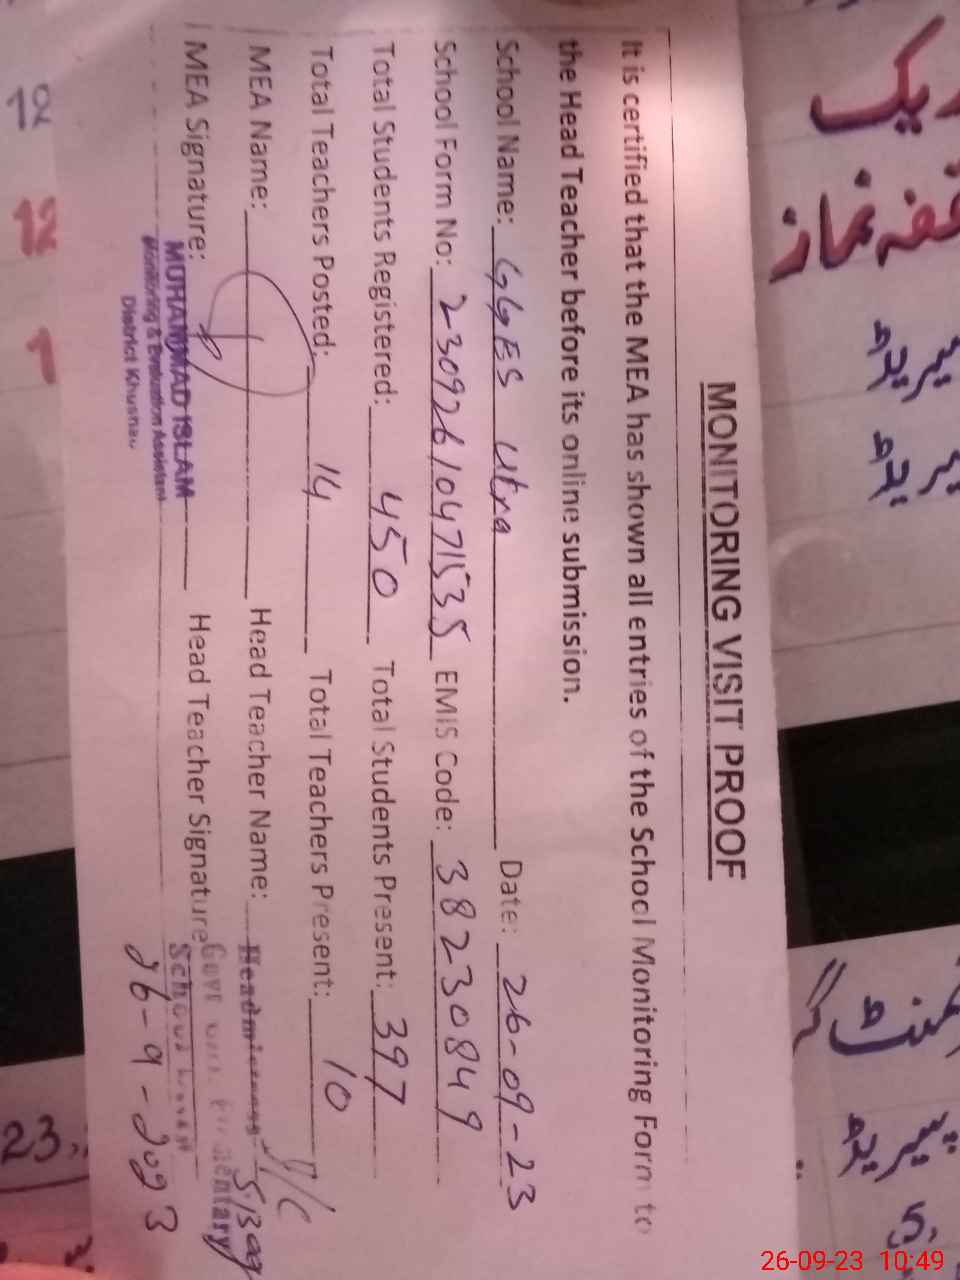 MONITORING VISIT PROOF
It is certified that the MEA has shown all entries of the School Monitoring Form to
the Head Teacher before its online submission.
School Name: GGES Utra Date: 26-09-23
School Form No: 230926104711535 EMIS Code: 38230849
Total Students Registered: 450 Total Students Present: 397
Total Teachers Posted: 14 Total Teachers Present: 10
MEA Name: Head Teacher Name: Headmistress
MEA Signature: Head Teacher Signature
MUHAMMAD ISLAM
Monitoring & Evaluation Assistant
District Khushab
Govt Elementary
School
26-9-2023
12
12
1
23
26-09-23 10:49